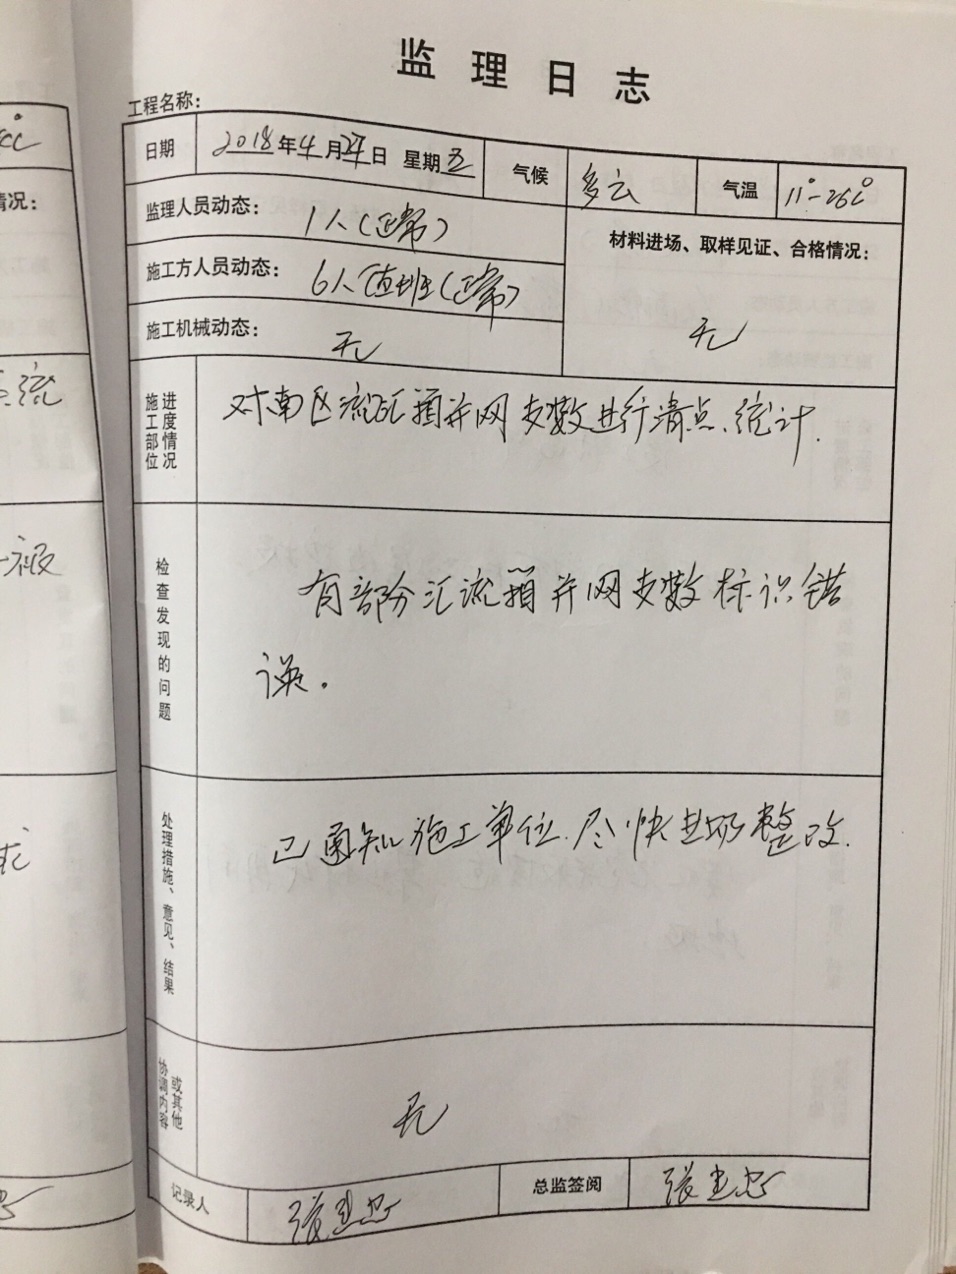 监理日志
工程名称：
日期 2018年4月27日 星期五 气候 多云 气温 11°-26℃
监理人员动态： 1人（正常）
材料进场、取样见证、合格情况：
施工方人员动态： 6人值班（正常）
施工机械动态： 无
无
进度情况
施工部位
对南区流汇箱并网支数进行清点、统计.
检查发现的问题
有部分汇流箱并网支数标识错
误.
处理措施、意见、结果
已通知施工单位.尽快进场整改.
或其他
协调内容
无
记录人 张 总监签阅 张
情况：
流